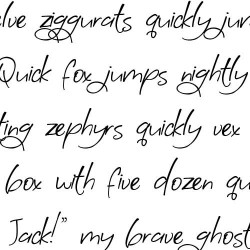 ziggurats quickly jum
Quick fox jumps nightly
ting zephyrs quickly vex
box with five dozen qu
Jack!" my brave ghost